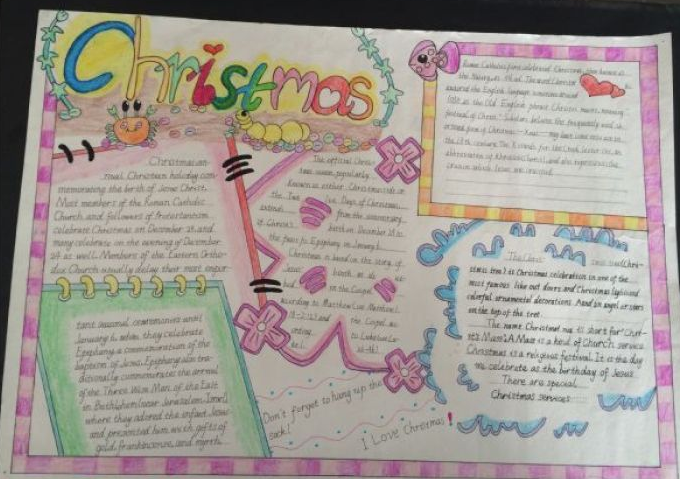 Christmas
Christmas an-
nual Christian holiday com-
memorating the birth of Jesus Christ.
Most members of the Roman Catholic
Church and followers of Protestantism
celebrate Christmas on December 25, and
many celebrate on the evening of December
24 as well. Members of the Eastern Ortho-
dox Church usually delay their most impor-
tant seasonal ceremonies until
January 6, when they celebrate
Epiphany, a commemoration of the
baptism of Jesus. Epiphany also tra-
ditionally commemorates the arrival
of the Three Wise Men of the East
in Bethlehem (near Jerusalem, Israel)
where they adored the infant Jesus
and presented him with gifts of
gold, frankincense, and myrrh.
The official Christ-
mas season, popularly
known as either Christmastide or
the Twelve Days of Christmas,
extends from the anniversary
of Christ's birth on December 25 to
the feast of Epiphany on January 6.
Christmas is based on the story of
Jesus' birth as
in the Gospel
according to Matthew (see Matthew 1
:18-2:12) and the Gospel ac-
cording to Luke (see Lu-
Don't forget to hang up the
sock!
I Love Christmas!
Roman Catholics first celebrated Christmas, then known as
the Nativity,
entered the English language sometime around
1050 as the Old English phrase Christes maesse, meaning
"festival of Christ." Scholars believe the frequently used sh-
ortened form of Christmas - Xmas - may have come into use in
the 13th century. The X stands for the Greek letter chi, an
abbreviation of Khristos (Christ), and also represents the
The Christmas tree and Chri-
stmas tree is Christmas celebration is one of the
most famous
colorful ornamental decorations. And an angel or stars
on the top of the tree.
The name Christmas is short for "Chri-
st's Mass". A Mass is a kind of Church service.
Christmas is a religious festival. It is the day
we celebrate as the birthday of Jesus.
There are special
Christmas services